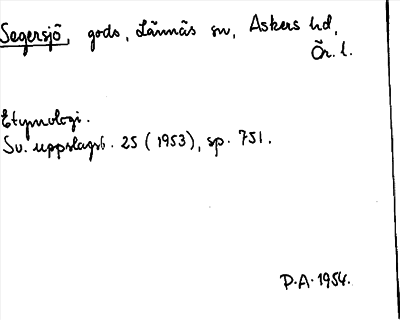 Segersjö, gods, Lännäs sn, Askers hd,
Ör. l.
Etymologi.
Sv. uppslagsb. 25 (1953), sp. 751.
P.A. 1954.